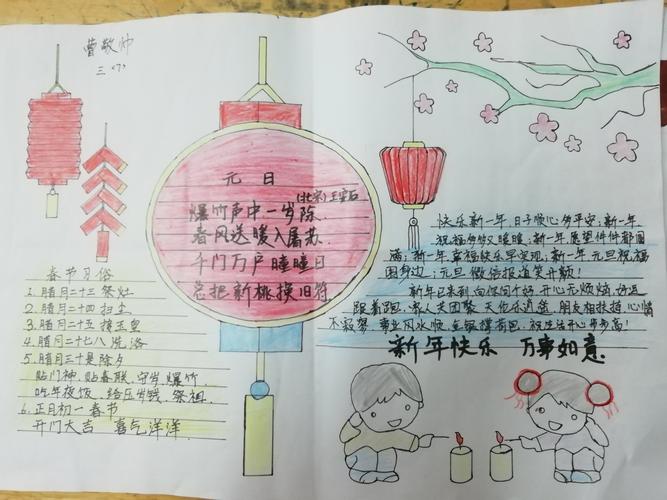 曹敬帅
三(7)
元日
(北宋)王安石
爆竹声中一岁除
春风送暖入屠苏.
千门万户瞳瞳日
总把新桃换旧符.
春节习俗
1. 腊月二十三祭灶
2. 腊月二十四扫尘
3. 腊月二十五接玉皇
4. 腊月二十七八洗浴
5. 腊月三十是除夕
贴门神,贴春联,守岁,爆竹,
吃年夜饭,给压岁钱,祭祖.
6. 正月初一春节
开门大吉 喜气洋洋.
快乐新一年,日子顺心多平安;新一年
祝福多多又暖暖;新一年愿望件件都圆
满;新一年幸福快乐早实现;新一年元旦祝福
围身边;元旦微信报道笑开颜!
新年已来到,向你问个好,开心无烦恼,好运
跟着跑,家人天团聚,天伦乐逍遥,朋友相扶持,心情
不寂寥,事业风水顺,金银撑荷包,祝生活开心步步高!
新年快乐 万事如意.